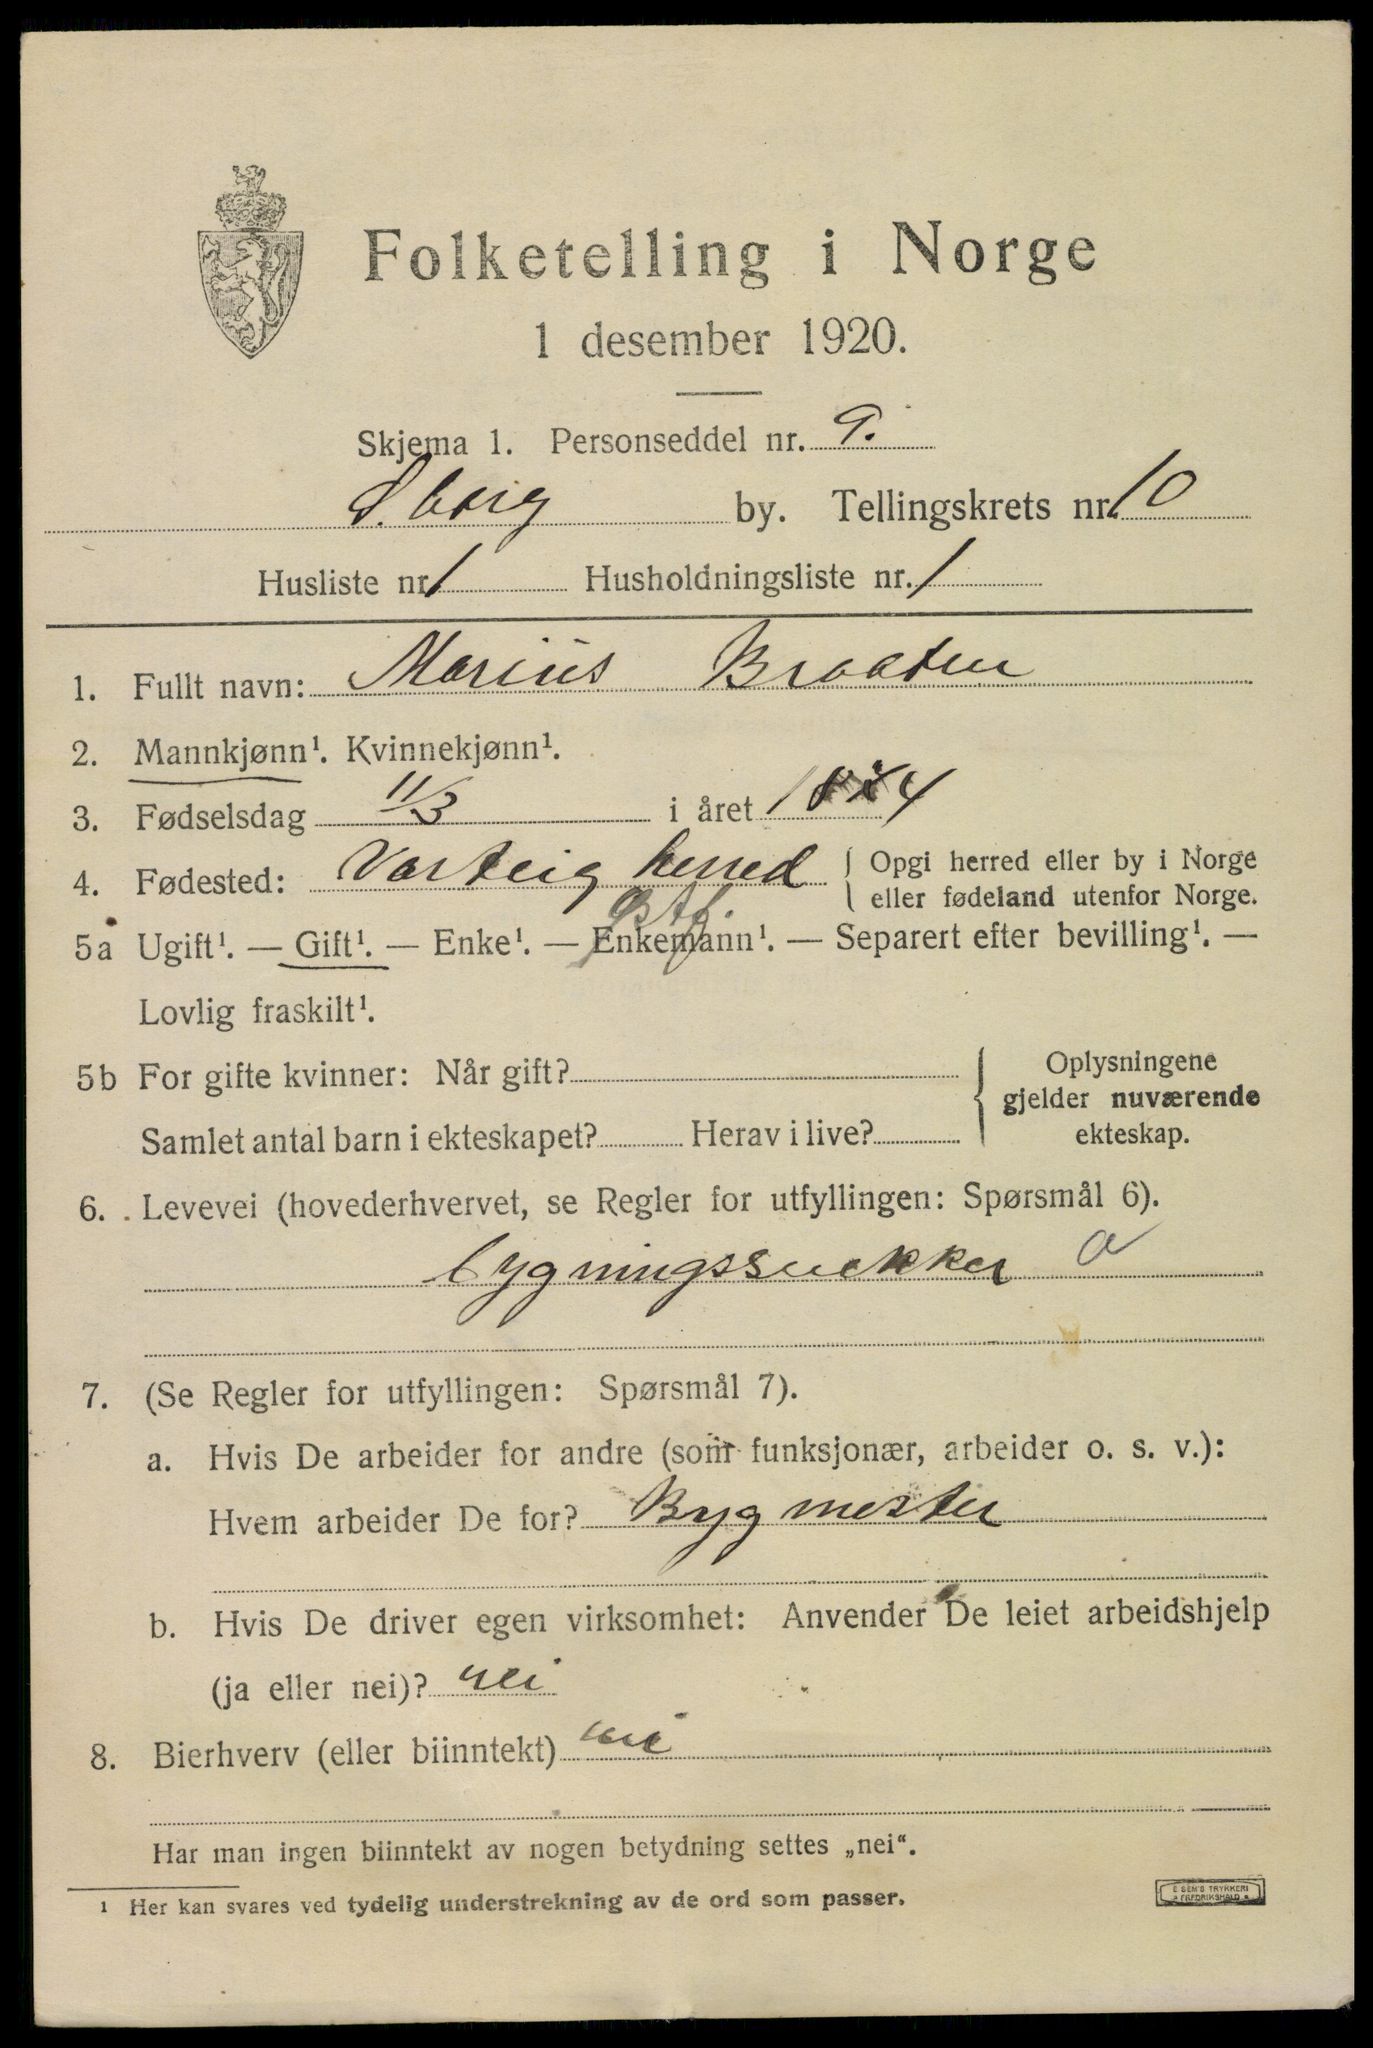 Folketelling i Norge
1 desember 1920.
Skjema 1. Personseddel nr. 9.
S.borg by. Tellingskrets nr. 10
Husliste nr. 1 Husholdningsliste nr. 1
1. Fullt navn: Marius Braaten
2. Mannkjønn¹. Kvinnekjønn¹.
3. Fødselsdag 11/3 i året 1874
4. Fødested: Varteig herred { Opgi herred eller by i Norge
eller fødeland utenfor Norge.
Østf.
5a Ugift¹. — Gift¹. — Enke¹. — Enkemann¹. — Separert efter bevilling¹. —
Lovlig fraskilt¹.
5b For gifte kvinner: Når gift? { Oplysningene
gjelder nuværende
Samlet antal barn i ekteskapet? Herav i live? ekteskap.
6. Levevei (hovederhvervet, se Regler for utfyllingen: Spørsmål 6).
bygningssnekker a
7. (Se Regler for utfyllingen: Spørsmål 7).
a. Hvis De arbeider for andre (som funksjonær, arbeider o. s. v.):
Hvem arbeider De for? Bygmester
b. Hvis De driver egen virksomhet: Anvender De leiet arbeidshjelp
(ja eller nei)? nei
8. Bierhverv (eller biinntekt) nei
Har man ingen biinntekt av nogen betydning settes „nei“.
¹ Her kan svares ved tydelig understrekning av de ord som passer.
E SEM'S TRYKKERI
FREDRIKSHALD